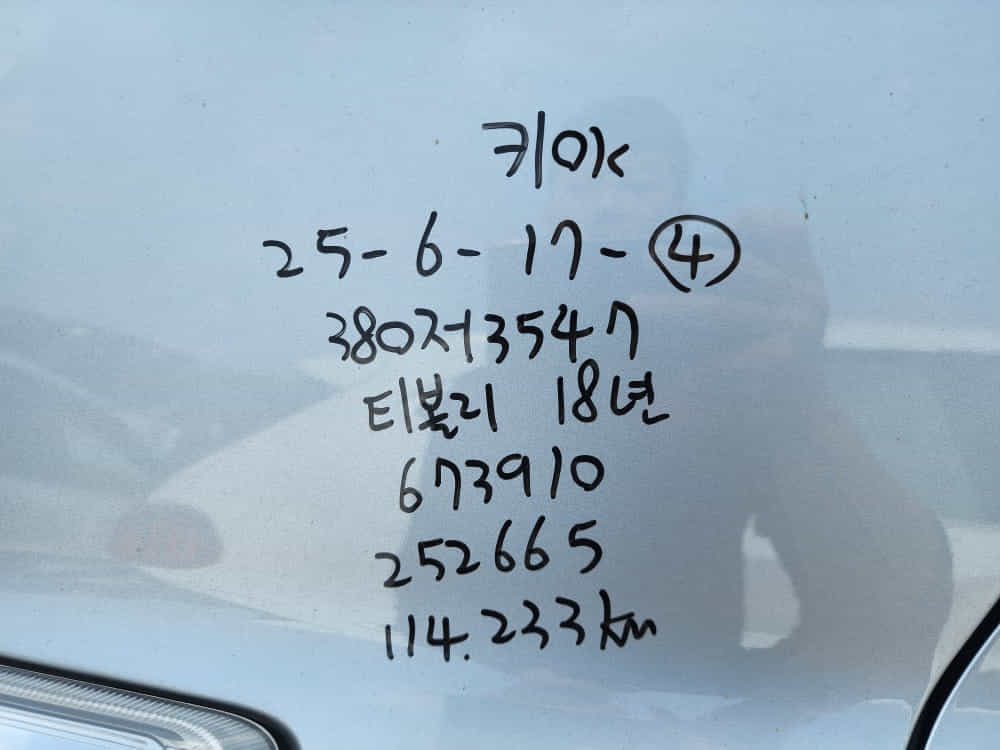 키야
25-6-17-④
380저3547
티볼리 18년
673910
252665
114.233km